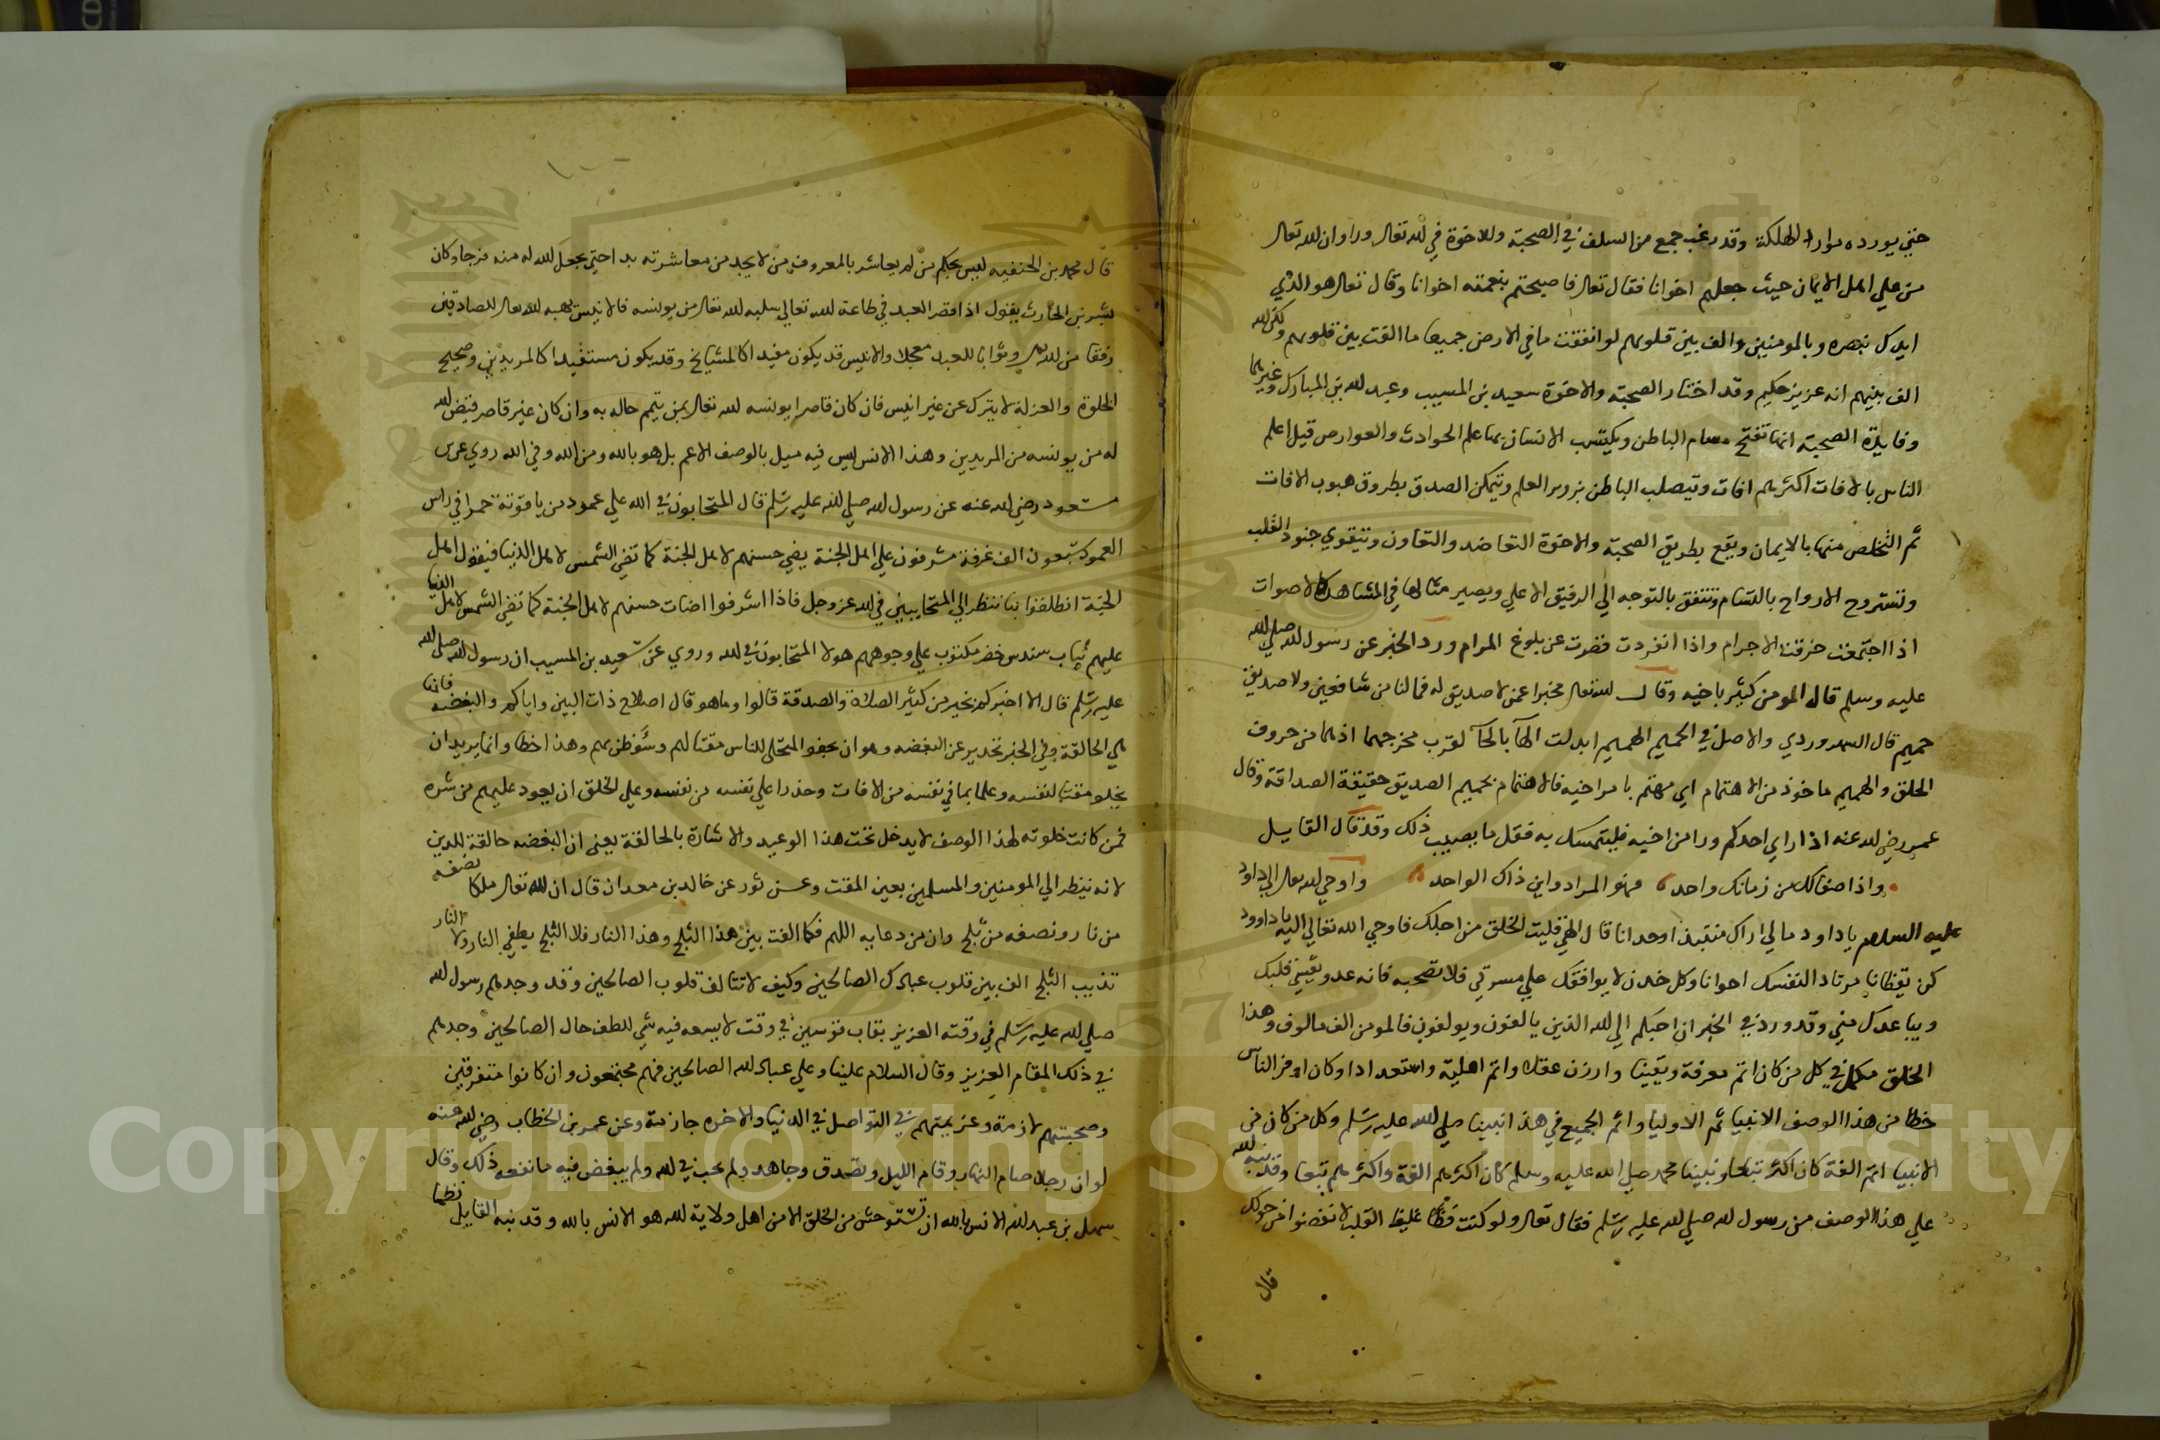 حتي يورده موارد الهلكة وقد رغب جمع من السلف في الصحبة والاخوة في الله تعالى وراوا ان الله تعالى
من علي اهل الايمان حيث جعلهم اخوانا فقال تعالى فاصبحتم بنعمته اخوانا وقال تعالى هو الذي
ايدك بنصره وبالمومنين والف بين قلوبهم لو انفقت ما في الارض جميعا ما الفت بين قلوبهم ولكن الله
الف بينهم انه عزيز حكيم وقد اختار الصحبة والاخوة سعيد بن المسيب وعبد الله بن المبارك وغيرهما
وفايدة الصحبة انها تفتح مسام الباطن ويكتسب الانسان بها علم الحوادث والعوارض قيل اعلم
الناس بالافات اكثرهم افات ويتصلب الباطن بزوير العلم ويتمكن الصدق بطروق هبوب الافات
ثم التخلص منها بالايمان ويقع بطريق الصحبة والاخوة التعاضد والتعاون وتتقوي جنود القلب
وتستروح الارواح بالتسام وتتفق بالتوجه الي الرفيق الاعلي ويصير مثالها في المشاهد كالاصوات
اذا اجتمعت خرقت الاجرام واذا انفردت قصرت عن بلوغ المرام ورد الخبر عن رسول الله صلي الله
عليه وسلم قال المومن كثير باخيه وقال الله تعالى مخبرا عمن لا صديق له فما لنا من شافعين ولا صديق
حميم قال السهروردي والاصل في الحميم الهميم ابدلت الهآ بالحآ لقرب مخرجهما اذ هما من حروف
الحلق والهميم ماخوذ من الاهتمام اي مهتم بامر اخيه فالاهتمام بحميم الصديق حقيقة الصداقة وقال
عمر رضي الله عنه اذا راي احدكم ودا من اخيه فليتمسك به فقل ما يصيب ذلك وقد قال القايل
واذا صفا لك من زمانك واحد فهو المراد واين ذاك الواحد واوحي الله تعالى الي داود
عليه السلام يا داود مالي اراك منتبذا وحدانا قال الهي قليت الخلق من اجلك فاوحي الله تعالي اليه يا داوود
كن يقظانا مرتاد النفسك اخوانا وكل خدن لا يوافقك علي مسرتي فلا تصحبه فانه عدو يقسي قلبك
ويباعدك مني وقد ورد في الخبر ان احبكم الي الله الذين يالفون ويولفون فالمومن الف مالوف وهذا
الخلق مكمل في كل من كان اتم معرفة ويقينا وارزن عقلا واتم اهلية واستعدادا وكان اوفر الناس
حظا من هذا الوصف الانبيا ثم الاوليا واتم الجميع في هذا نبينا صلي الله عليه وسلم وكل من كان من
الانبيا اتم الفة كان اكثر تبعا ونبينا محمد صلي الله عليه وسلم كان اكثرهم الفة واكثرهم تبعا وقد نبه الله
علي هذا الوصف من رسول الله صلي الله عليه وسلم فقال تعالى ولو كنت فظا غليظ القلب لا نفضوا من حولك
قال
قال محمد بن الحنفيه ليس بحكيم من لم يعاشر بالمعروف من لا يجد من معاشرته بدا حتي يجعل الله له منه فرجا وكان
بشر بن الحارث يقول اذا قصر العبد في طاعة الله تعالي سلبه الله تعالى من يونسه فالانيس يهبه الله تعالى للصادقين
رفقا من الله تعالى وثوابا للعبد معجلا والانيس قد يكون مفيدا كالمشايخ وقد يكون مستفيدا كالمريدين وصحيح
الخلوة والعزلة لا يترك عن غير انيس فان كان قاصرا يونسه الله تعالى بمن يتمم حاله به وان كان غير قاصر فيقيض الله
له من يونسه من المريدين وهذا الانس ليس فيه ميل بالوصف الاعم بل هو بالله ومن الله وفي الله روي عن بن
مسعود رضي الله عنه عن رسول الله صلي الله عليه وسلم قال المتحابون في الله علي عمود من ياقوتة حمرا في راس
العمود سبعون الف غرفة مشرفون علي اهل الجنة يضي حسنهم لاهل الجنة كما تضي الشمس لاهل الدنيا فيقول اهل
الجنة انطلقوا بنا ننظر الي المتحابين في الله عز وجل فاذا اشرفوا اضات حسنهم لاهل الجنة كما تضي الشمس لاهل الدنيا
عليهم ثياب سندس خضر مكتوب علي وجوههم هولا المتحابون في الله وروي عن سعيد بن المسيب ان رسول الله صلي الله
عليه وسلم قال الا اخبركم بخير من كثير الصلاة والصدقة قالوا وما هو قال اصلاح ذات البين واياكم والبغضه فانها
هي الحالقة وفي الخبر تحذير عن البغضه وهو ان يجفو المتخلي للناس مقتا لهم وسؤ ظن بهم وهذا خطا وانما يريد ان
يخلو مقتا لنفسه وعلما بما في نفسه من الافات وحذرا علي نفسه من نفسه وعلي الخلق ان يعود عليهم من شره
فمن كانت خلوته لهذا الوصف لا يدخل تحت هذا الوعيد والاشارة بالحالقة يعني ان البغضه حالقة للدين
لانه ينظر الي المومنين والمسلمين بعين المقت وعن ثور عن خالد بن معدان قال ان لله تعالى ملكا نصفه
من نار ونصفه من ثلج وان من دعايه اللهم فكما الفت بين هذا الثلج وهذا النار فلا الثلج يطفي النار ولا النار
تذيب الثلج الف بين قلوب عبادك الصالحين وكيف لا تتالف قلوب الصالحين وقد وجدهم رسول الله
صلي الله عليه وسلم في وقته العزيز بقاب قوسين في وقت لا يسعه فيه شي للطف حال الصالحين وجدهم
في ذلك المقام العزيز وقال السلام علينا وعلي عباد الله الصالحين فهم مجتمعون وان كانوا متفرقين
وصحبتهم لازمة وعزيمتهم في التواصل في الدنيا والاخره جازمة وعن عمر بن الخطاب رضي الله عنه
لو ان رجلا صام النهار وقام الليل وتصدق وجاهد ولم يحب في الله ولم يبغض فيه ما نفعه ذلك وقال
سهل بن عبد الله الانس بالله ان تستوحش من الخلق الا من اهل ولاية الله هو الانس بالله وقد نبه القايل نظما
Copyright © King Saud University
1957